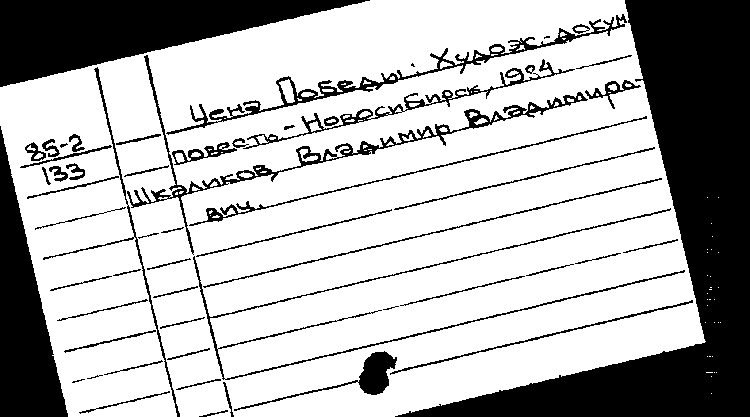 Цена Победы: Худож.-докум.
85-2
повесть - Новосибирск, 1984.
133
Шкаликов, Владимир Владимиро-
вич.